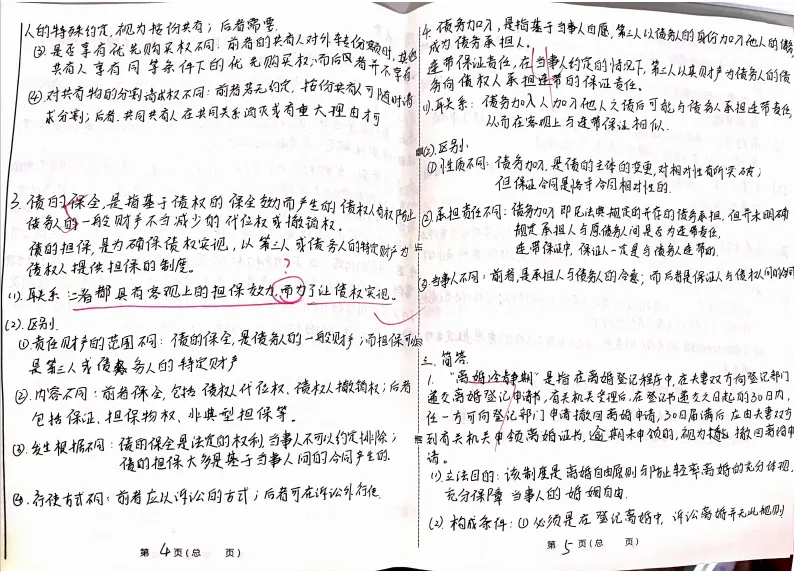 人的特殊约定,视为按份共有;后者需要.
③是否享有优先购买权不同:前者的共有人对外转让份额时,其他
共有人享有同等条件下的优先购买权;而后者并不享有.
④对共有物的分割请求权不同:前者若无约定,按份共有人可随时请
求分割;后者.共同共有人在共同关系消灭或有重大理由时
3.债的保全,是指基于债权的保全效力而产生的,债权人有权防止
债务人的一般财产不当减少的代位权或撤销权。
债的担保,是为确保债权实现,以第三人或债务人的特定财产为
债权人提供担保的制度。
?
(1).联系:二者都具有客观上的担保效力,而为了让债权实现.
(2).区别.
①责任财产的范围不同:债的保全,是债务人的一般财产;而担保可
是第三人或债务人的特定财产
②.内容不同:前者保全,包括债权人代位权、债权人撤销权;后者
包括保证、担保物权、非典型担保等。
③.发生根据不同:债的保全是法定的权利,当事人不可以约定排除;
债的担保大多是基于当事人间的合同产生的.
④.行使方式不同:前者应以诉讼的方式;后者可在诉讼外行使.
第 4 页(总 页)
4.债务加入,是指基于当事人自愿,第三人以债务人的身份加入他人的债务,
成为债务承担人。
连带保证责任,在当事人约定的情况下,第三人以其财产为债务人的债
务向债权人承担连带的保证责任。
(1).联系:债务加入人加入他人之债后可能与债务人承担连带责任,
从而在客观上与连带保证相似.
(2).区别:
①性质不同:债务加入,是债的主体的变更,对相对性有所突破;
但保证合同是恪守合同相对性的.
②承担责任不同:债务加入即民法典规定的并存的债务承担,但并未明确
规定承担人与原债务人间是否为连带责任,
连带保证中,保证人一定是与债务人连带的.
③当事人不同:前者,是承担人与债务人的合意;而后者是保证人与债权人间的合同
三.简答.
1."离婚冷静期"是指在离婚登记程序中,在夫妻双方向登记部门
递交离婚登记申请书,有关机关受理后,在登记书递交之日起的30日内,
任一方可向登记部门申请撤回离婚申请,30日届满后,应由夫妻双方
到有关机关申领离婚证书,逾期未申领的,视为撤回离婚申
请.
(1).立法目的:该制度是离婚自由原则与防止轻率离婚的充分体现.
充分保障当事人的婚姻自由.
(2).构成条件:①必须是在登记离婚中,诉讼离婚并无此规则
第 5 页(总 页)